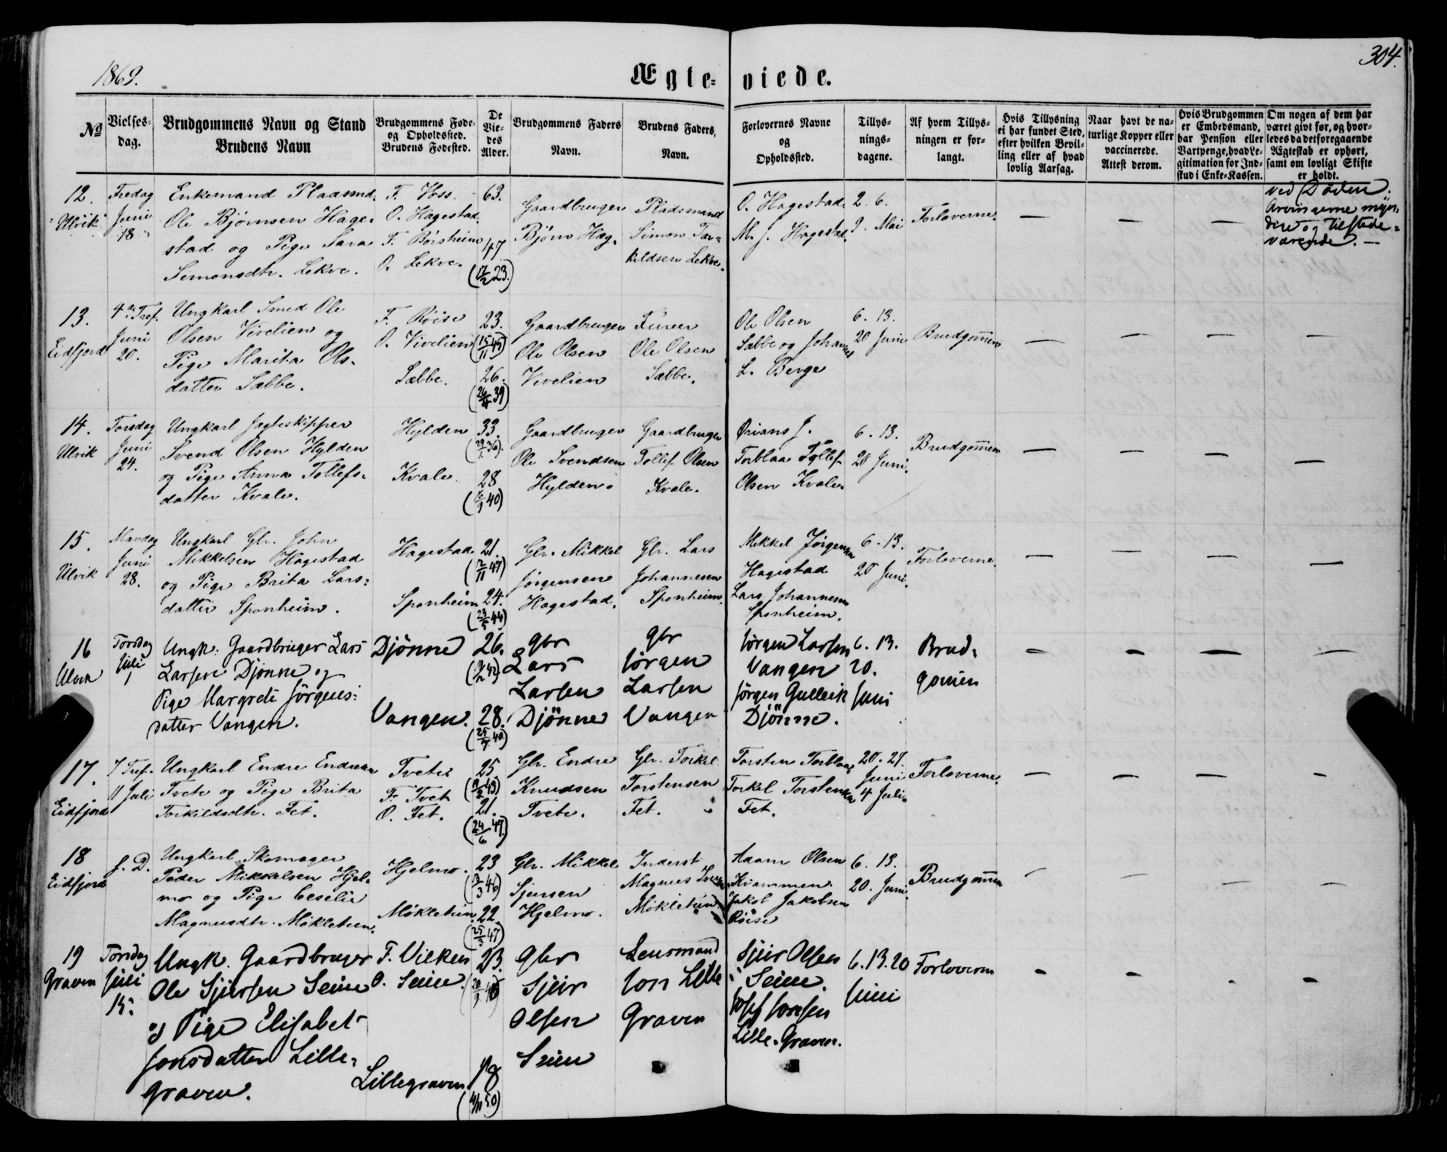 1869.
304.
Ægte-viede.
No
Vielses-
dag.
Brudgommens Navn og Stand
Brudens Navn
Brudgommens Føde-
og Opholdssted.
Brudens Fødested.
De
Vie-
des
Alder.
Brudgommens Faders
Navn.
Brudens Faders
Navn.
Forlovernes Navne
og
Opholdssted.
Tillys-
nings-
dagene.
Af hvem Tillys-
ningen er for-
langt.
Hvis Tillysning
ei har fundet Sted,
efter hvilken Bevil-
ling eller af hvad
lovlig Aarsag.
Naar havt de na-
turlige Kopper eller
vaccinerede.
Attest derom.
Hvis Brudgommen
er Embedsmand,
har Pension eller
Vartpenge, hvad Le-
gitimation for Ind-
skud i Enke-Kassen.
Om nogen af dem har
været gift før, og hvor-
ledes da det foregaaende
Ægteskab er ophørt,
samt om lovligt Skifte
er holdt.
12.
Ulvik
Fredag
Juni
18
Enkemand Pladsmd.
Ole Bjørnsen Hage-
stad og Pige Sara
Simonsdtr. Lekve.
F. Voss
O. Hagestad
F. Børsheim
O. Lekve.
63.
47
Gaardbruger
Bjørn Hag.
Pladsmand
Simon Tor-
kildsen Lekve.
O. Hagestad.
M. J. Hagestad.
2. 6.
9. Mai
Forloverne
ved Døden.
Arvingerne myn-
dige og tilstede-
værende. —
13.
Eidfjord
Juni
20.
Ungkarl Smed Ole
Olsen Vivelien og
Pige Marita Ols-
datter Sæbbe.
F. Røise
O. Vivelien
Sæbbe.
23.
(15/11 45)
26.
Gaardbruger
Ole Olsen
Vivelien
Ole Olsen
Sæbbe.
Ole Olsen
Sæbbe og Johannes
L. Berge
6. 13.
20 Juni
Brudgommen
14.
Ulvik
Torsdag
Juni
24.
Ungkarl Jagteskipper
Svend Olsen Hylden
og Pige Anna Tollefs-
datter Kvale.
Hylden
Kvale.
33
28
Gaardbruger
Ole Svendsen
Hylden.
Gaardbruger
Tollef Olsen
Kvale.
Torblaa Tollef
Olsen Kvale
6. 13.
20 Juni.
Brudgommen
15.
Ulvik
Mandag
Juni
28.
Ungkarl Gbr. John
Mikkelsen Hagestad
og Pige Brita Lars-
datter Sponheim.
Hagestad.
Sponheim
21.
24.
Gbr. Mikkel
Jørgensen
Hagestad.
Gbr. Lars
Johannesen
Sponheim.
Mikkel Jørgensen
Hagestad
Lars Johannesen
Sponheim.
6. 13.
20 Juni
Forloverne.
16
Ulvik
Torsdag
Juli
1
Ungk. Gaardbruger Lars
Larsen Djønne og
Pige Margrete Jørgens-
datter Vangen.
Djønne
Vangen.
26.
28.
Gbr
Lars
Larsen
Djønne
Gbr
Jørgen
Larsen
Vangen
Jørgen Larsen
Vangen
Jørgen Gulleik
Djønne.
6. 13.
20.
Juni
Brud-
gomen
17.
Eidfjord
11 Juli
Ungkarl Endre Endresen
Tveit og Pige Brita
Torkildsdtr. Fet.
Tveit
F. Tveit
O. Fet.
25
21.
(24/6 47)
Gbr. Endre
Knudsen
Tveit.
Gbr. Torkel
Torstensen
Fet.
Torsten Torblaa
Torkel Torstensen
Fet.
20. 27.
Juni
4 Juli
Forloverne.
18
Eidfjord
s. D.
Ungkarl Skomager
Peder Mikkelsen Hjel-
mo og Pige Cecelia
Magnusdtr. Møkletun.
Hjelmo.
Møkletun
23
22.
Gbr. Mikkel
Sjursen
Hjelmo.
Inderst
Magnus
Møkletun
Adam Olsen
Kvammen
Jakob Jakobsen
Røise
6. 13.
20. Juni.
Brudgommen
19
Graven
Torsdag
Juli
15.
Ungk. Gaardbruger
Ole Sjursen Seim
og Pige Elisabet
Jonsdatter Lille-
graven.
F. Vikens
O. Seim.
Lillegraven
23.
18
Gbr
Sjur
Olsen
Seim
Lensmand
Jon Lille
Graven
Sjur Olsen
Seim.
Josef Jonsen
Lille-Graven.
6. 13. 20
Juni
Forloverne